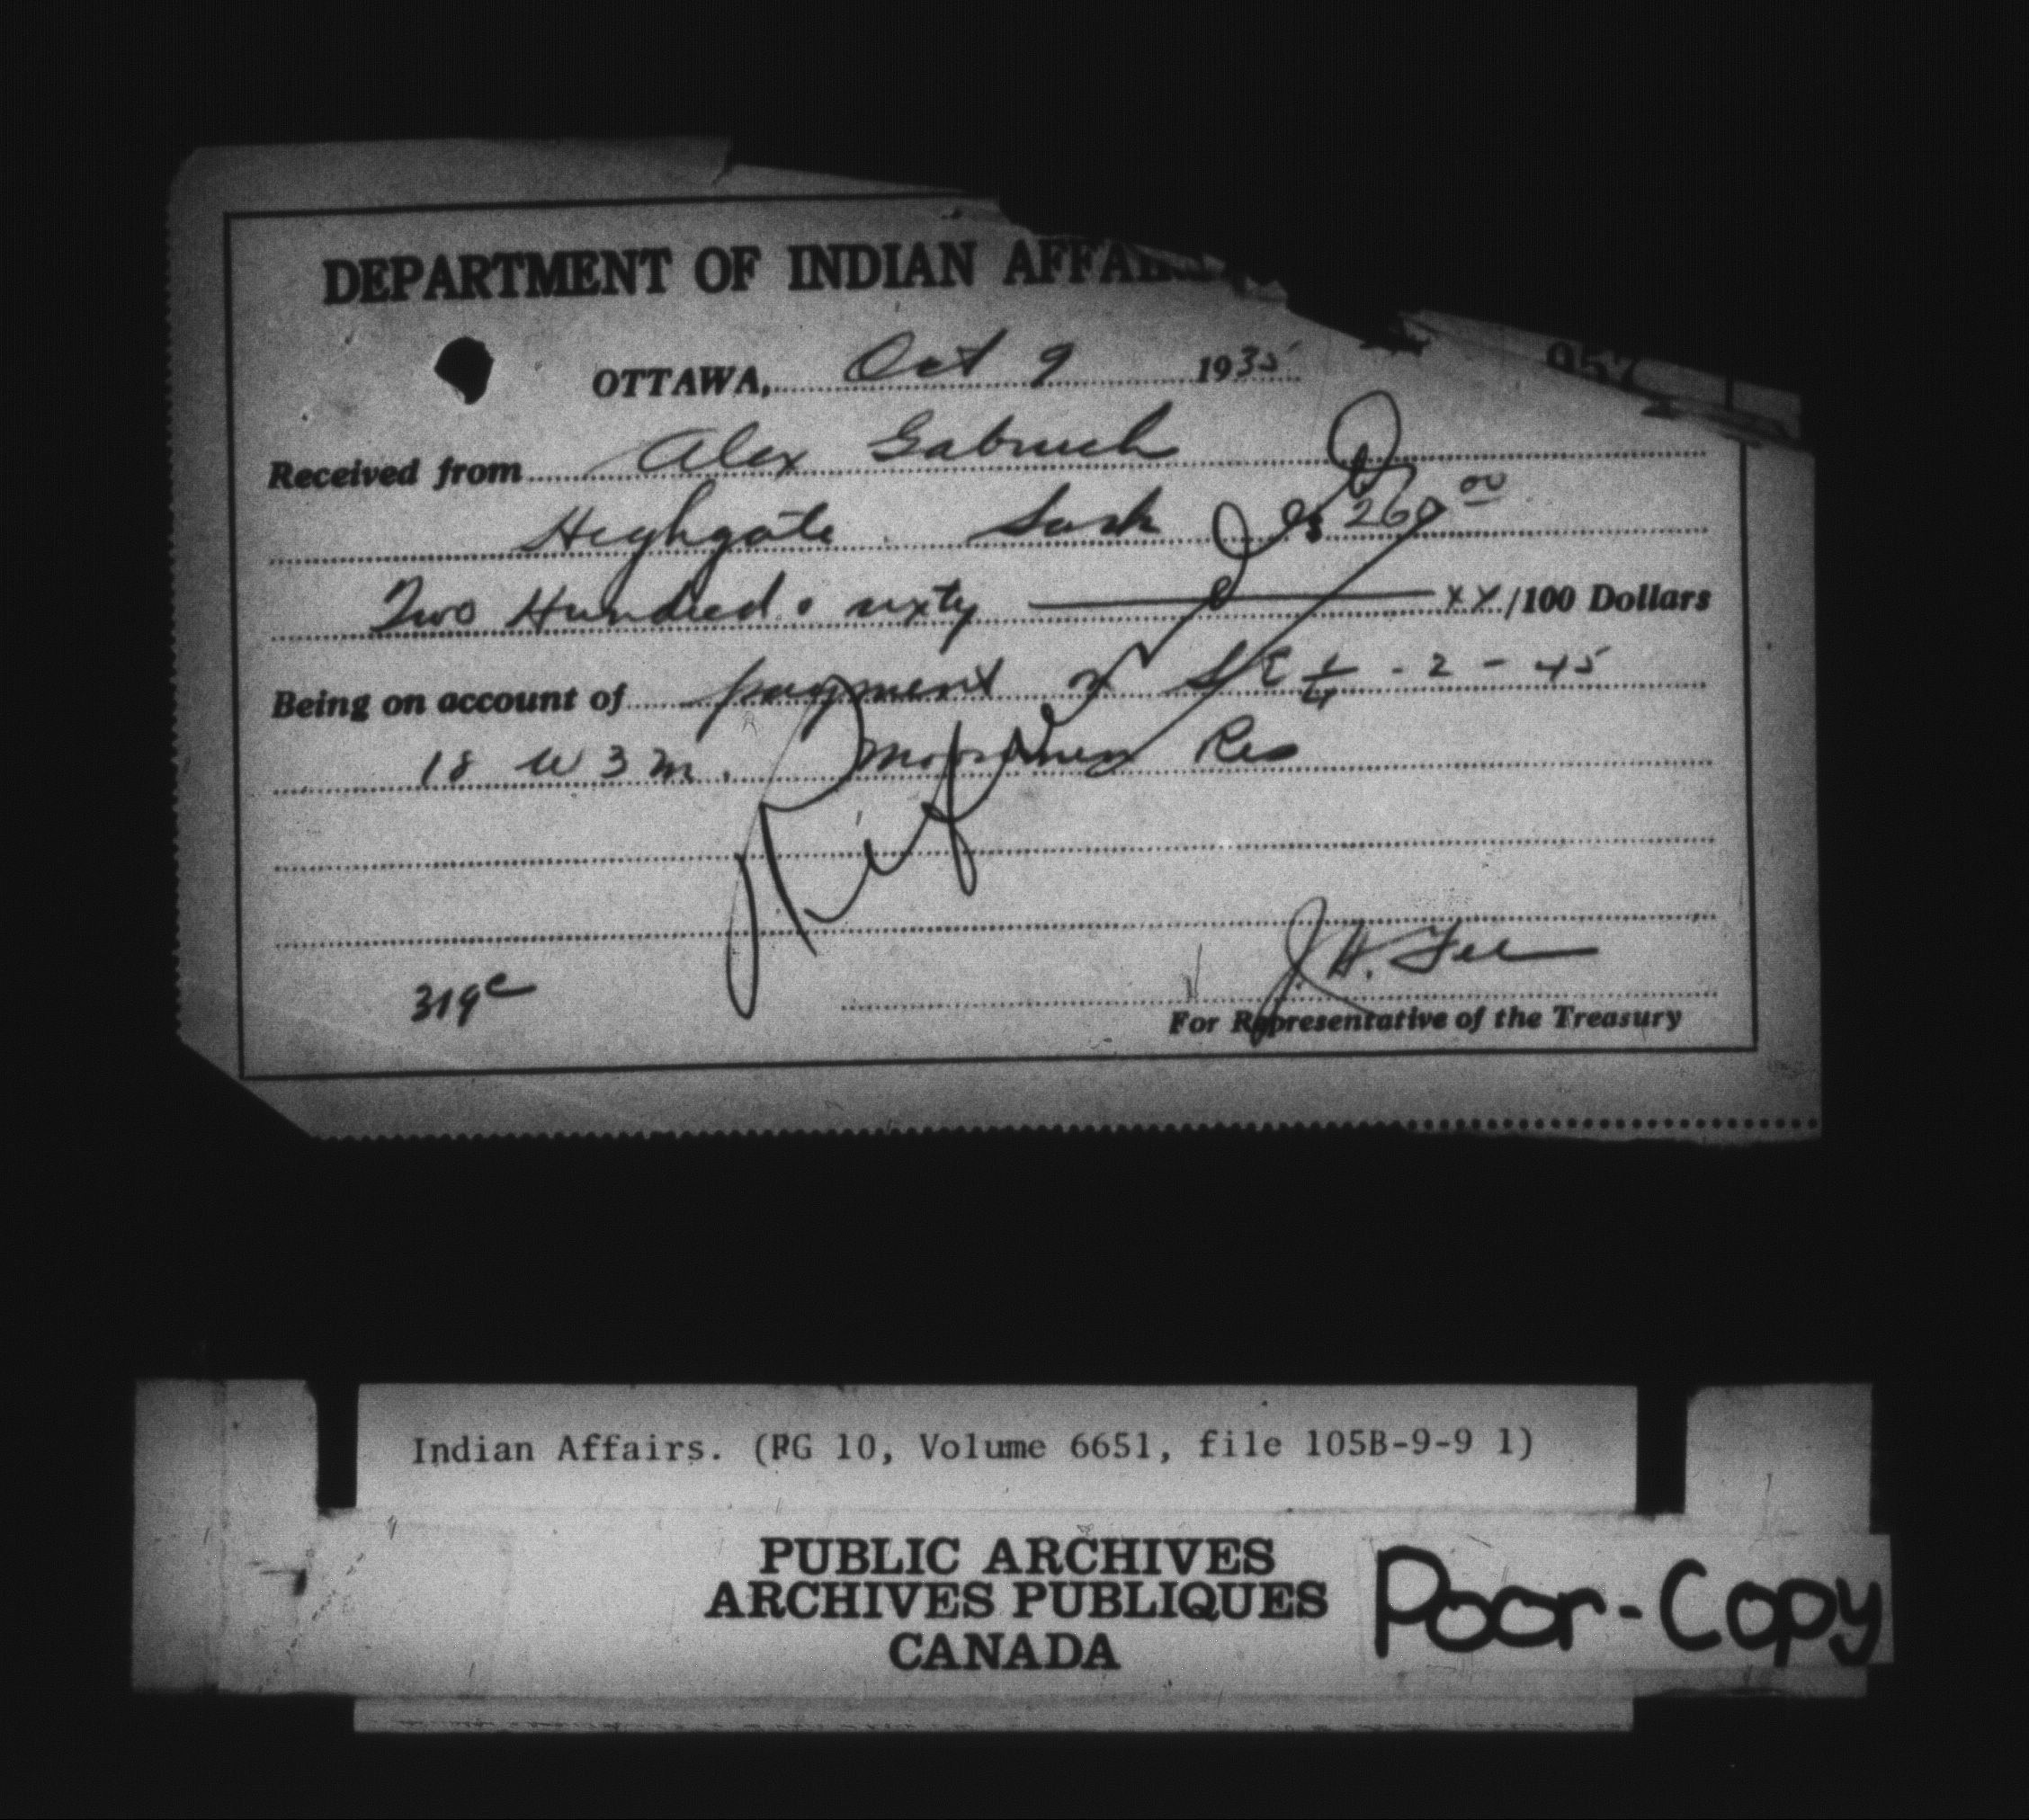 DEPARTMENT OF INDIAN AFFAIRS
957
OTTAWA, Oct 9 1935
Received from Alex Gabruch
Highgate Sask $ 260 00
Two Hundred & sixty xx/100 Dollars
Being on account of payment on SE 1/4 - 2 - 45
18 W 3 M. Moosomin Res
319c
J. H. Fee
For Representative of the Treasury
Indian Affairs. (RG 10, Volume 6651, file 105B-9-9 1)
PUBLIC ARCHIVES
ARCHIVES PUBLIQUES
CANADA
Poor-Copy